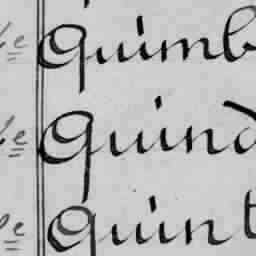 le Quimb
le Quind
le Quint